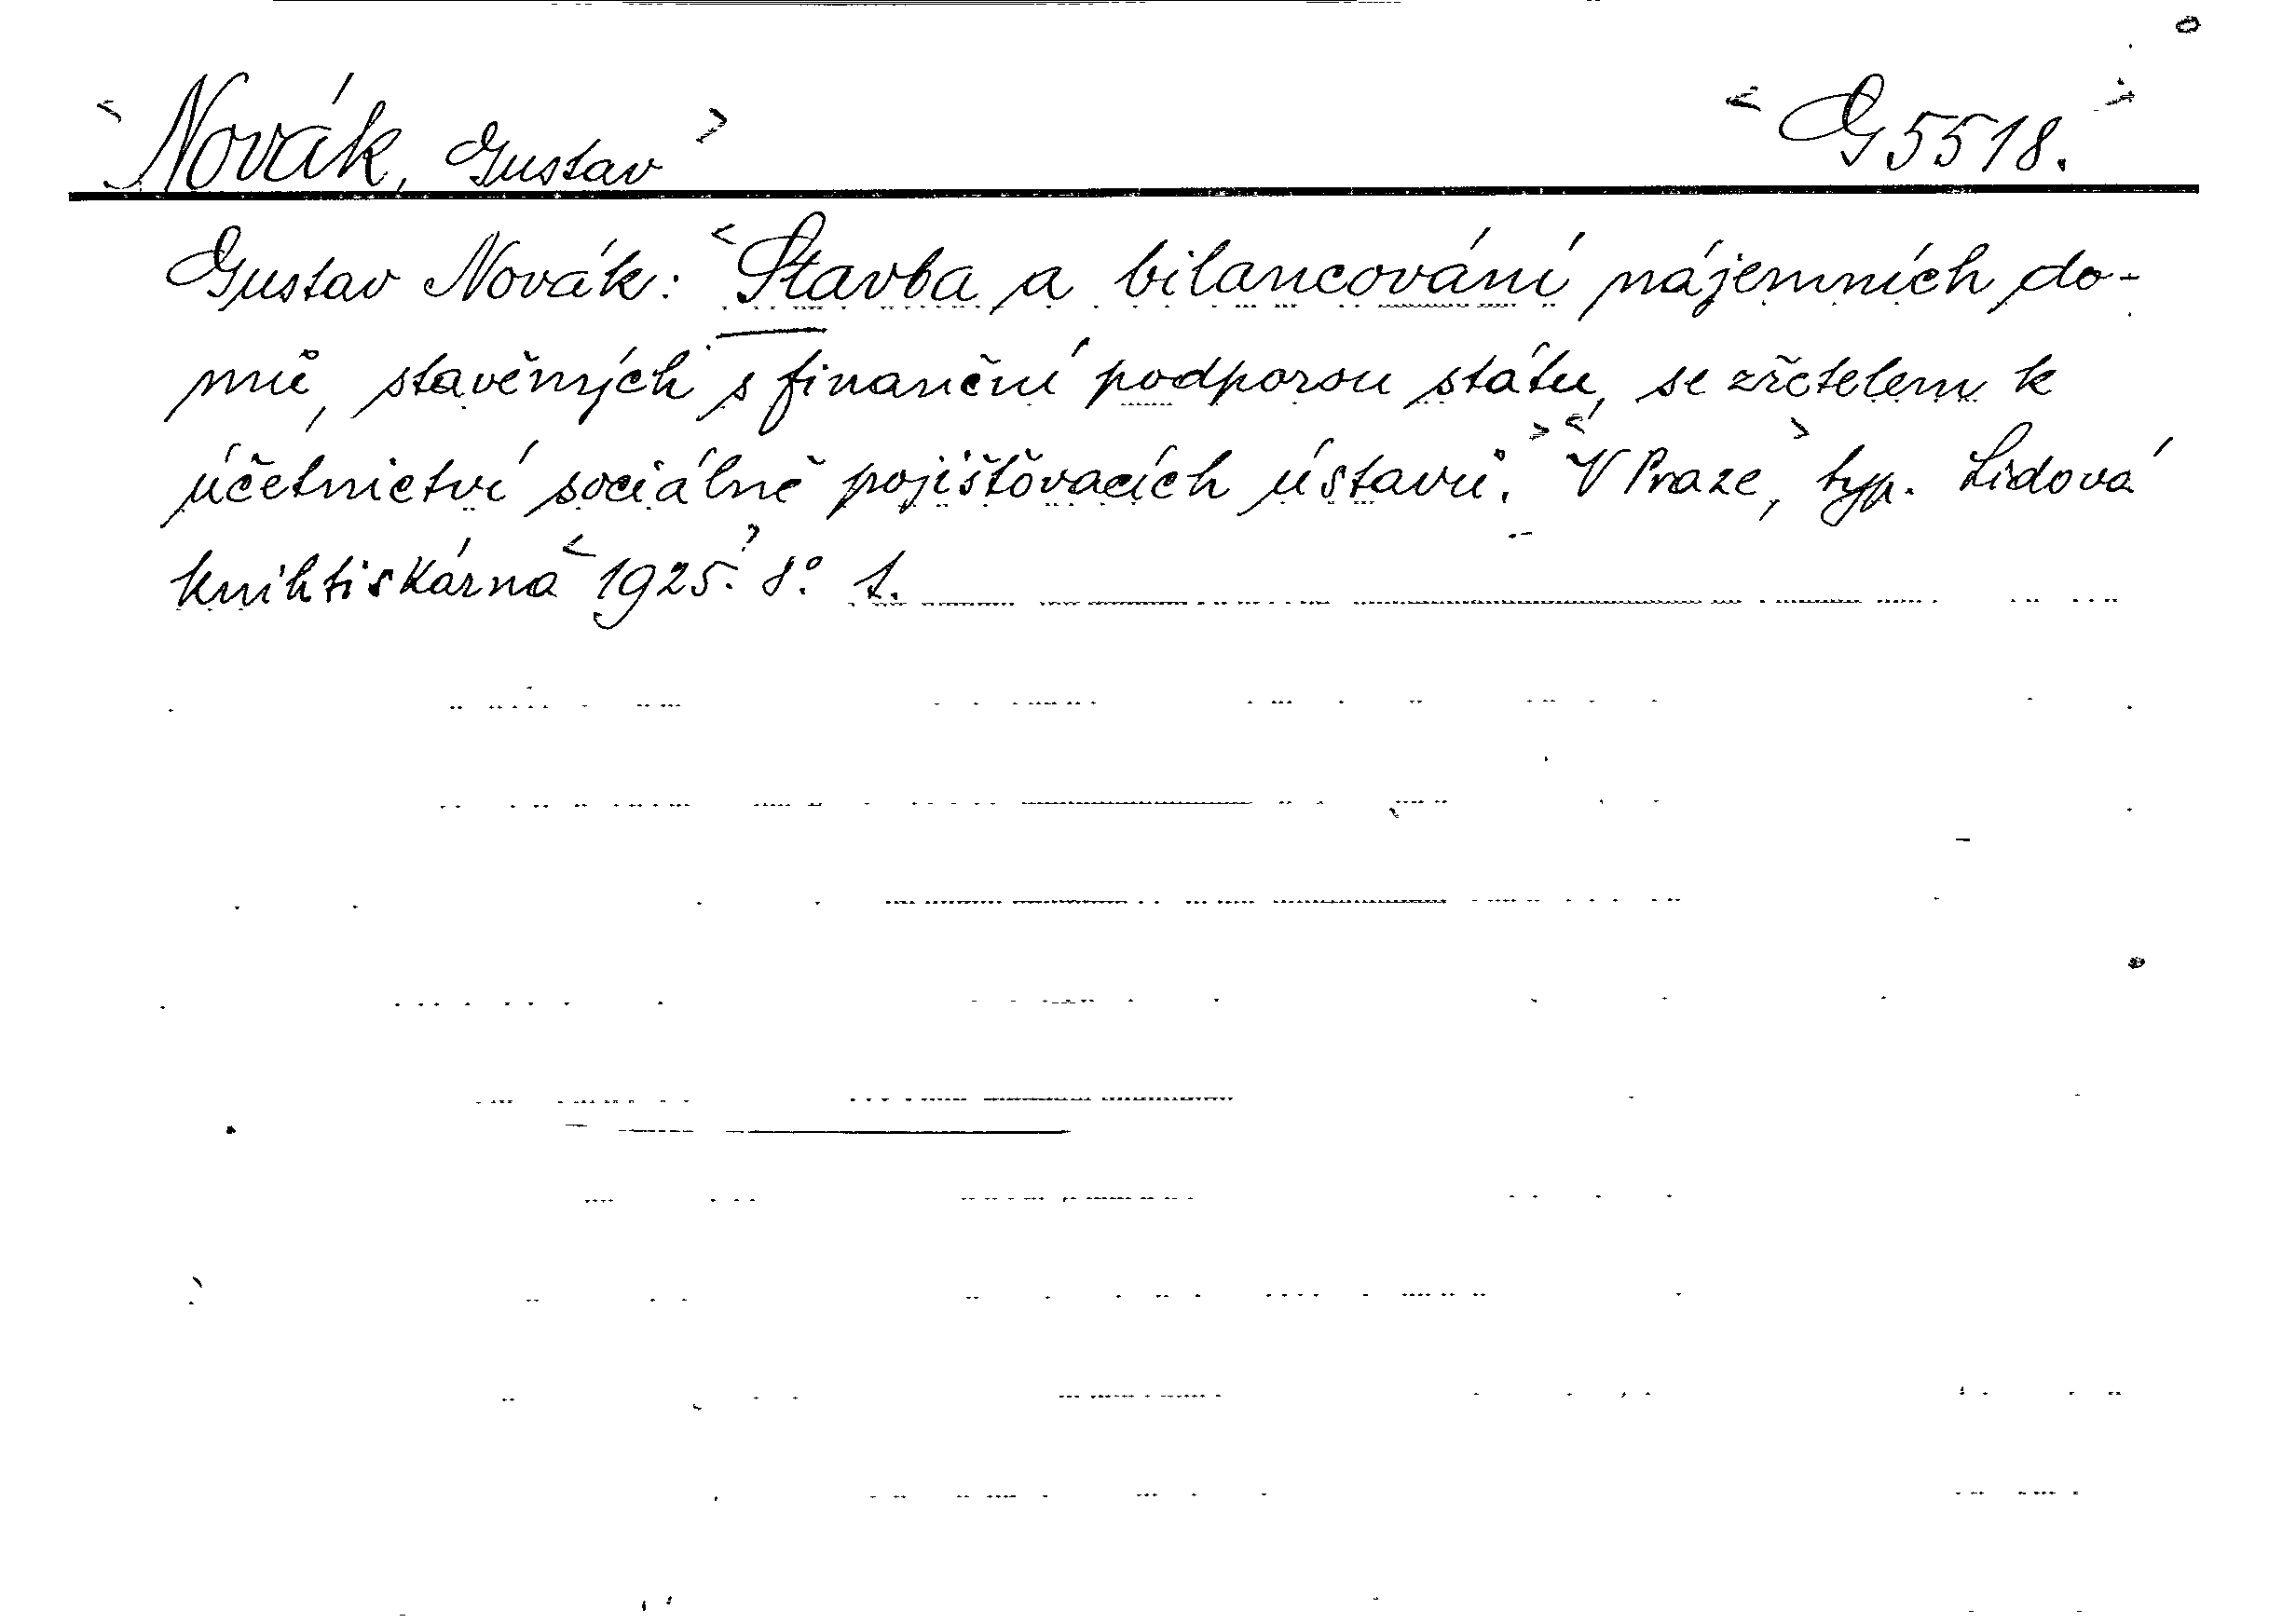 <Novák, Gustav> <G 5518.>
Gustav Novák: <Stavba a bilancování nájemních do-
mů, stavěných s finanční podporou státu, se zřetelem k
účetnictví sociálně pojišťovacích ústavů.> <V Praze,> typ. Lidová
knihtiskárna <1925.> 8°. 1.